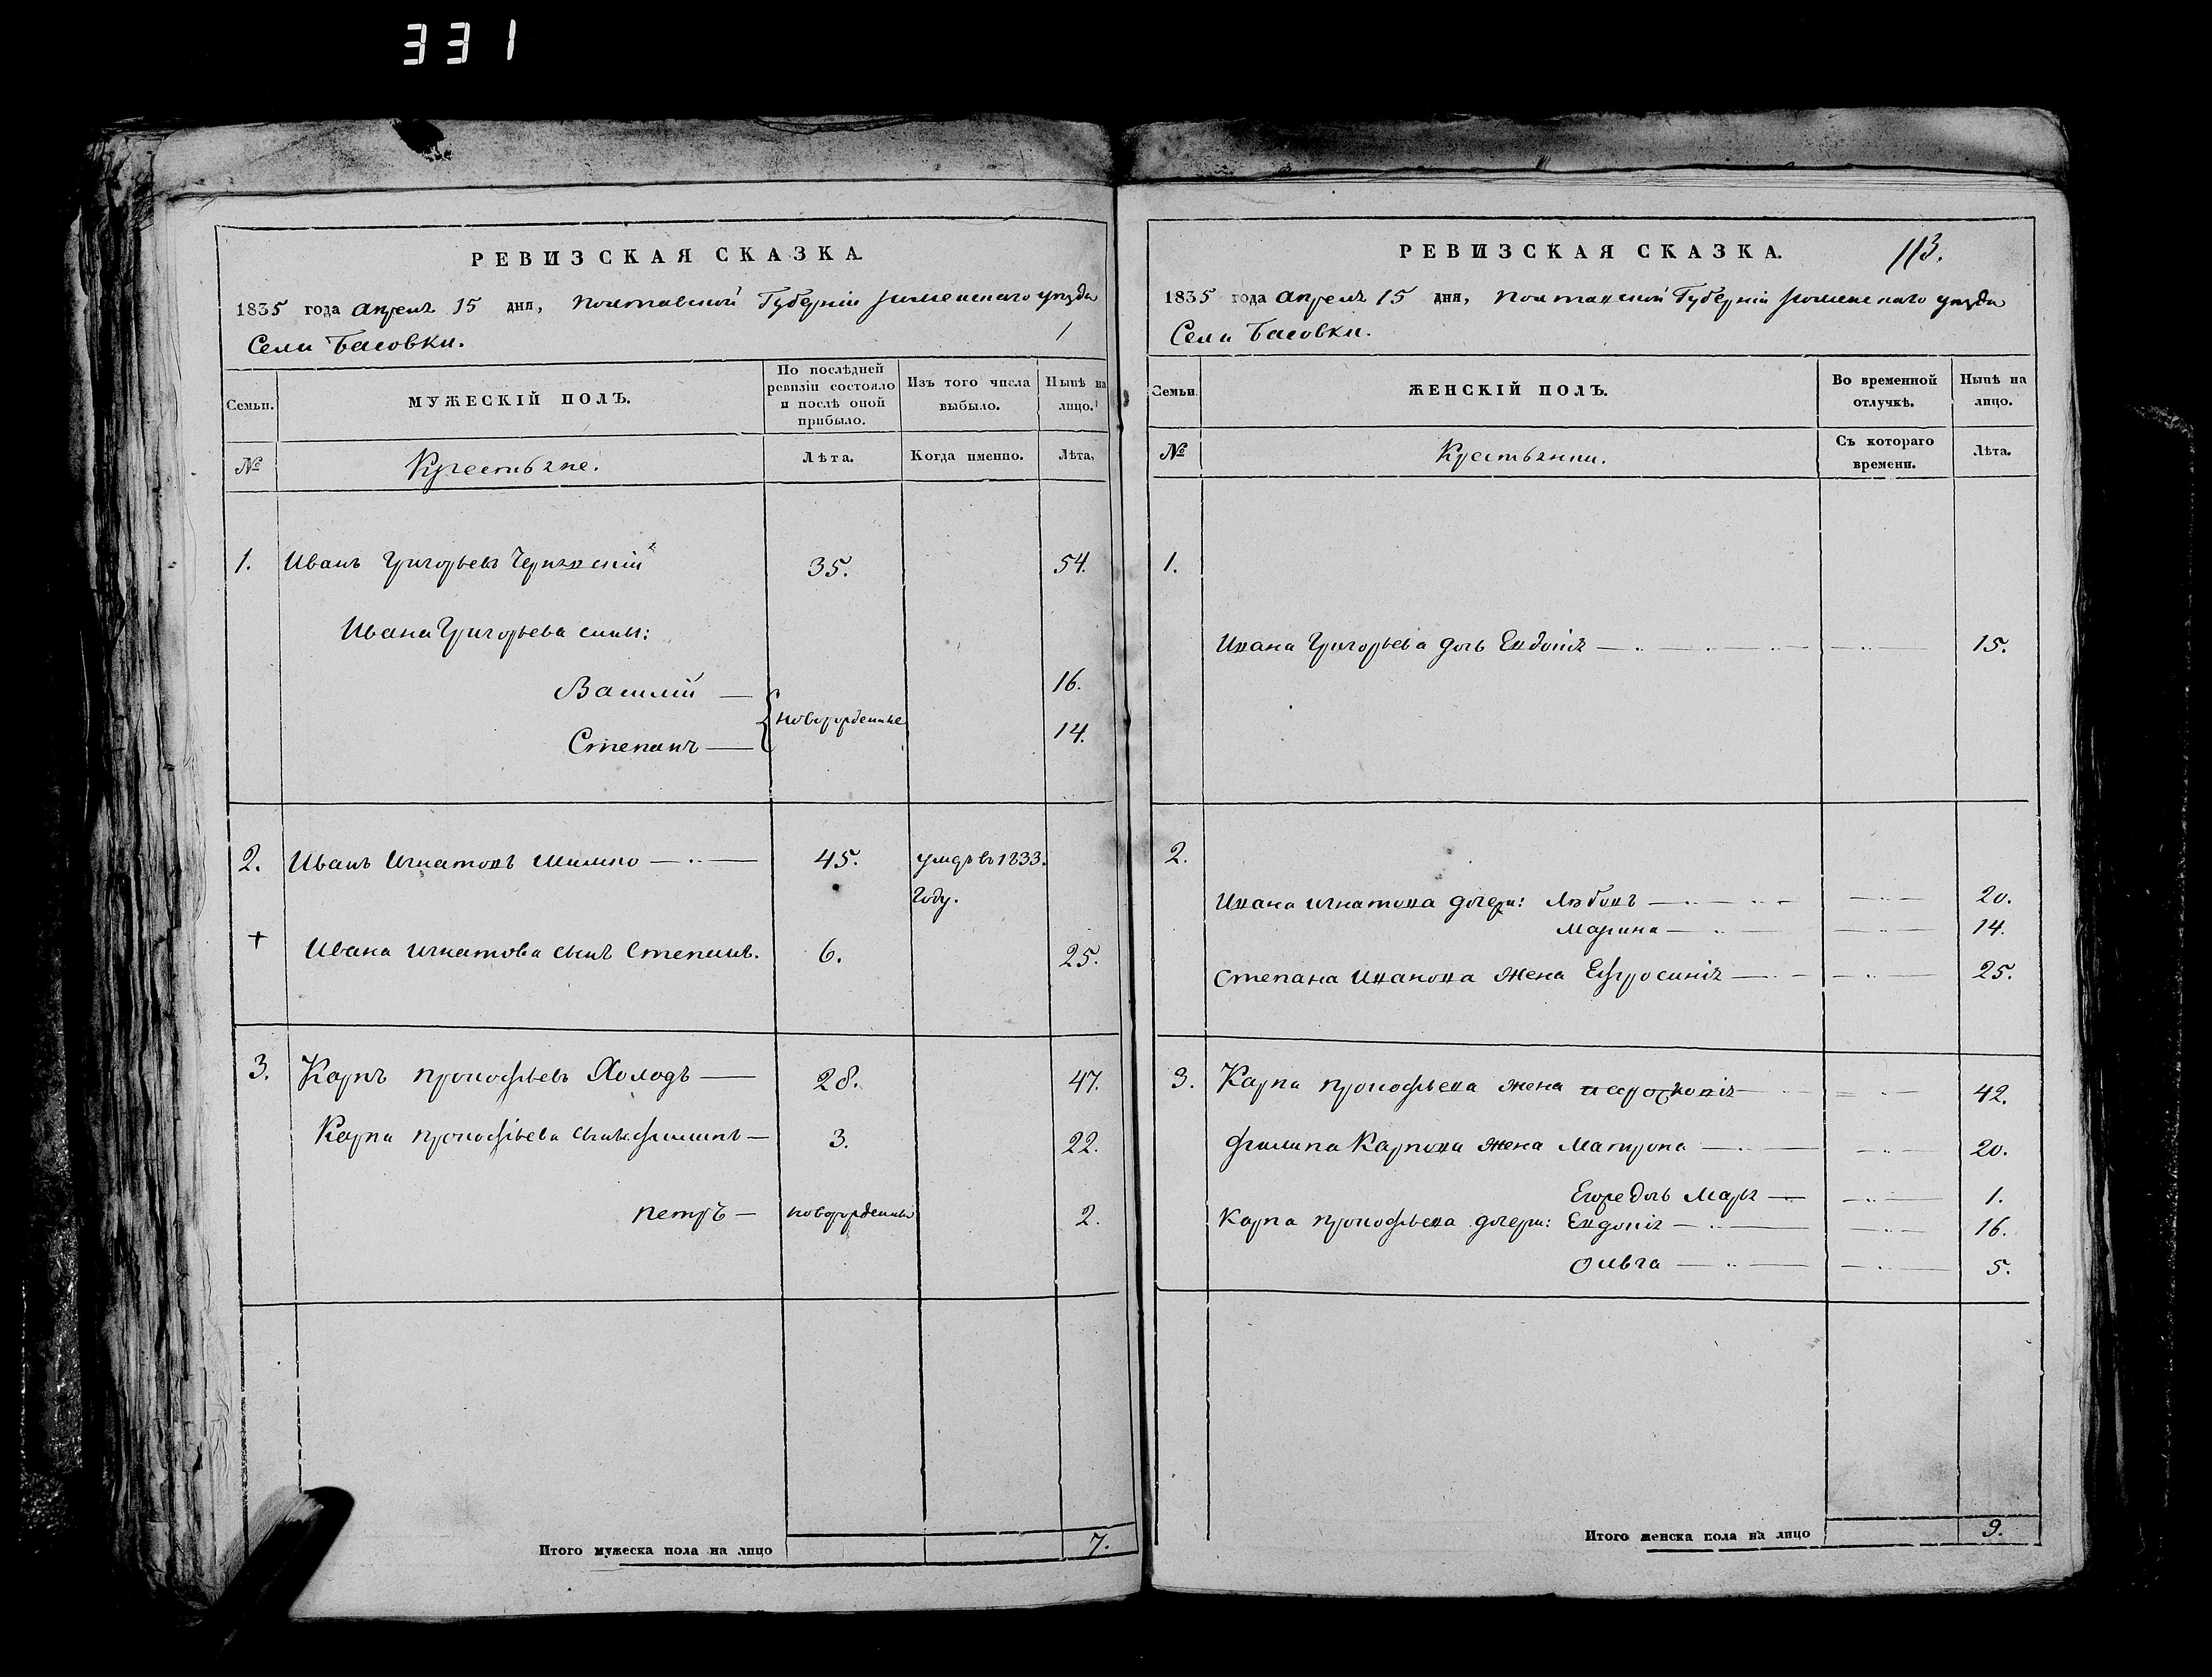 331
РЕВИЗСКАЯ СКАЗКА.
1835 года апреля 15 дня, Полтавской Губерніи роменскаго уезда
Села Басовки.
Семьи.
МУЖЕСКІЙ ПОЛЪ.
По послѣдней ревизіи состояло и послѣ оной прибыло.
Изъ того числа выбыло.
Нынѣ на лицо.
№
Крестьяне.
Лѣта.
Когда именно.
Лѣта,
1. Иванъ Григорьевъ 35. 54.
Ивана Григорьева сыны:
Василій — 16.
новорожденные
Степанъ — 14.
2. Иванъ Игнатовъ 45. умре въ 1833.
Году.
+ Ивана Игнатова сынъ Степанъ. 6. 25.
3. Карпъ прокофьевъ Холодъ — 28. 47.
Карпа прокофіева сынъ: филипъ — 3. 22.
петръ — новорожденный 2.
Итого мужеска пола на лицо 7.
РЕВИЗСКАЯ СКАЗКА. 113.
1835 года апреля 15 дня, полтавской Губерніи роменскаго уезда
Села Басовки.
Семьи
ЖЕНСКІЙ ПОЛЪ.
Во временной отлучкѣ.
Нынѣ на лицо.
№
Крестьянки.
Съ котораго времени.
Лѣта.
1.
Ивана Григорьева дочь Евдокія — 15.
2.
Ивана игнатова дочери: Любовь — 20.
Марина — 14.
Степана Иванова жена Ефросинія — 25.
3. Карпа прокофьева жена 42.
филипа Карпова жена Матрона — 20.
Егоже дочь Марья — 1.
Карпа прокофьева дочери: Евдокія — 16.
Ольга — 5.
Итого женска пола на лицо 9.